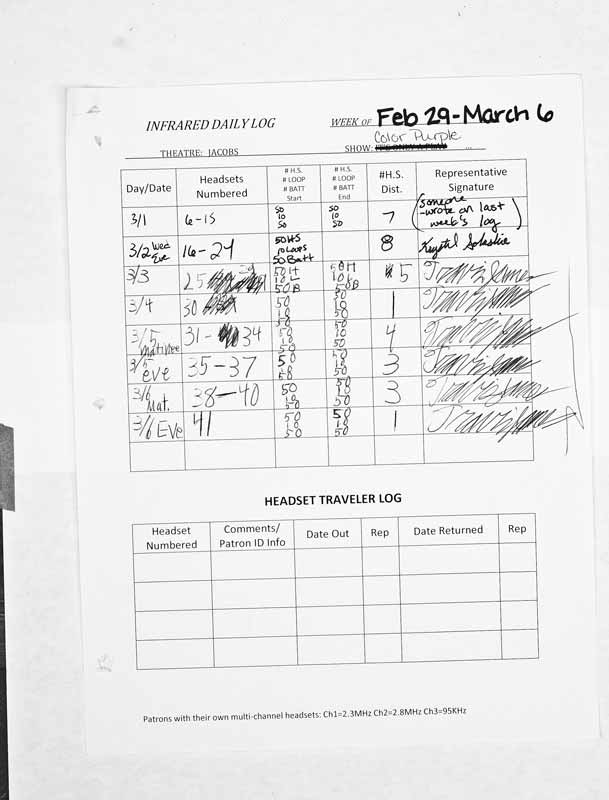 INFRARED DAILY LOG
WEEK OF Feb 29-March 6
Color Purple
THEATRE: JACOBS SHOW:
Day/Date Headsets Numbered # H.S. # LOOP # BATT Start # H.S. # LOOP # BATT End #H.S. Dist. Representative Signature
3/1 6-15 50 10 50 50 10 50 7 (someone wrote on last week's log)
3/2 Wed Eve 16-24 50 HS 10 Loops 50 Batt 8
3/3 25 50 H 10 L 50 B 50 H 10 L 50 B 5 Travis James
3/4 30 50 10 50 50 10 50 1 Travis James
3/5 matinee 31-34 50 10 50 50 10 50 4 Travis James
3/5 eve 35-37 50 10 50 50 10 50 3 Travis James
3/6 Mat. 38-40 50 10 50 50 10 50 3 Travis James
3/6 Eve 41 50 10 50 50 10 50 1 Travis James
HEADSET TRAVELER LOG
Headset Numbered Comments/ Patron ID Info Date Out Rep Date Returned Rep
Patrons with their own multi-channel headsets: Ch1=2.3MHz Ch2=2.8MHz Ch3=95KHz